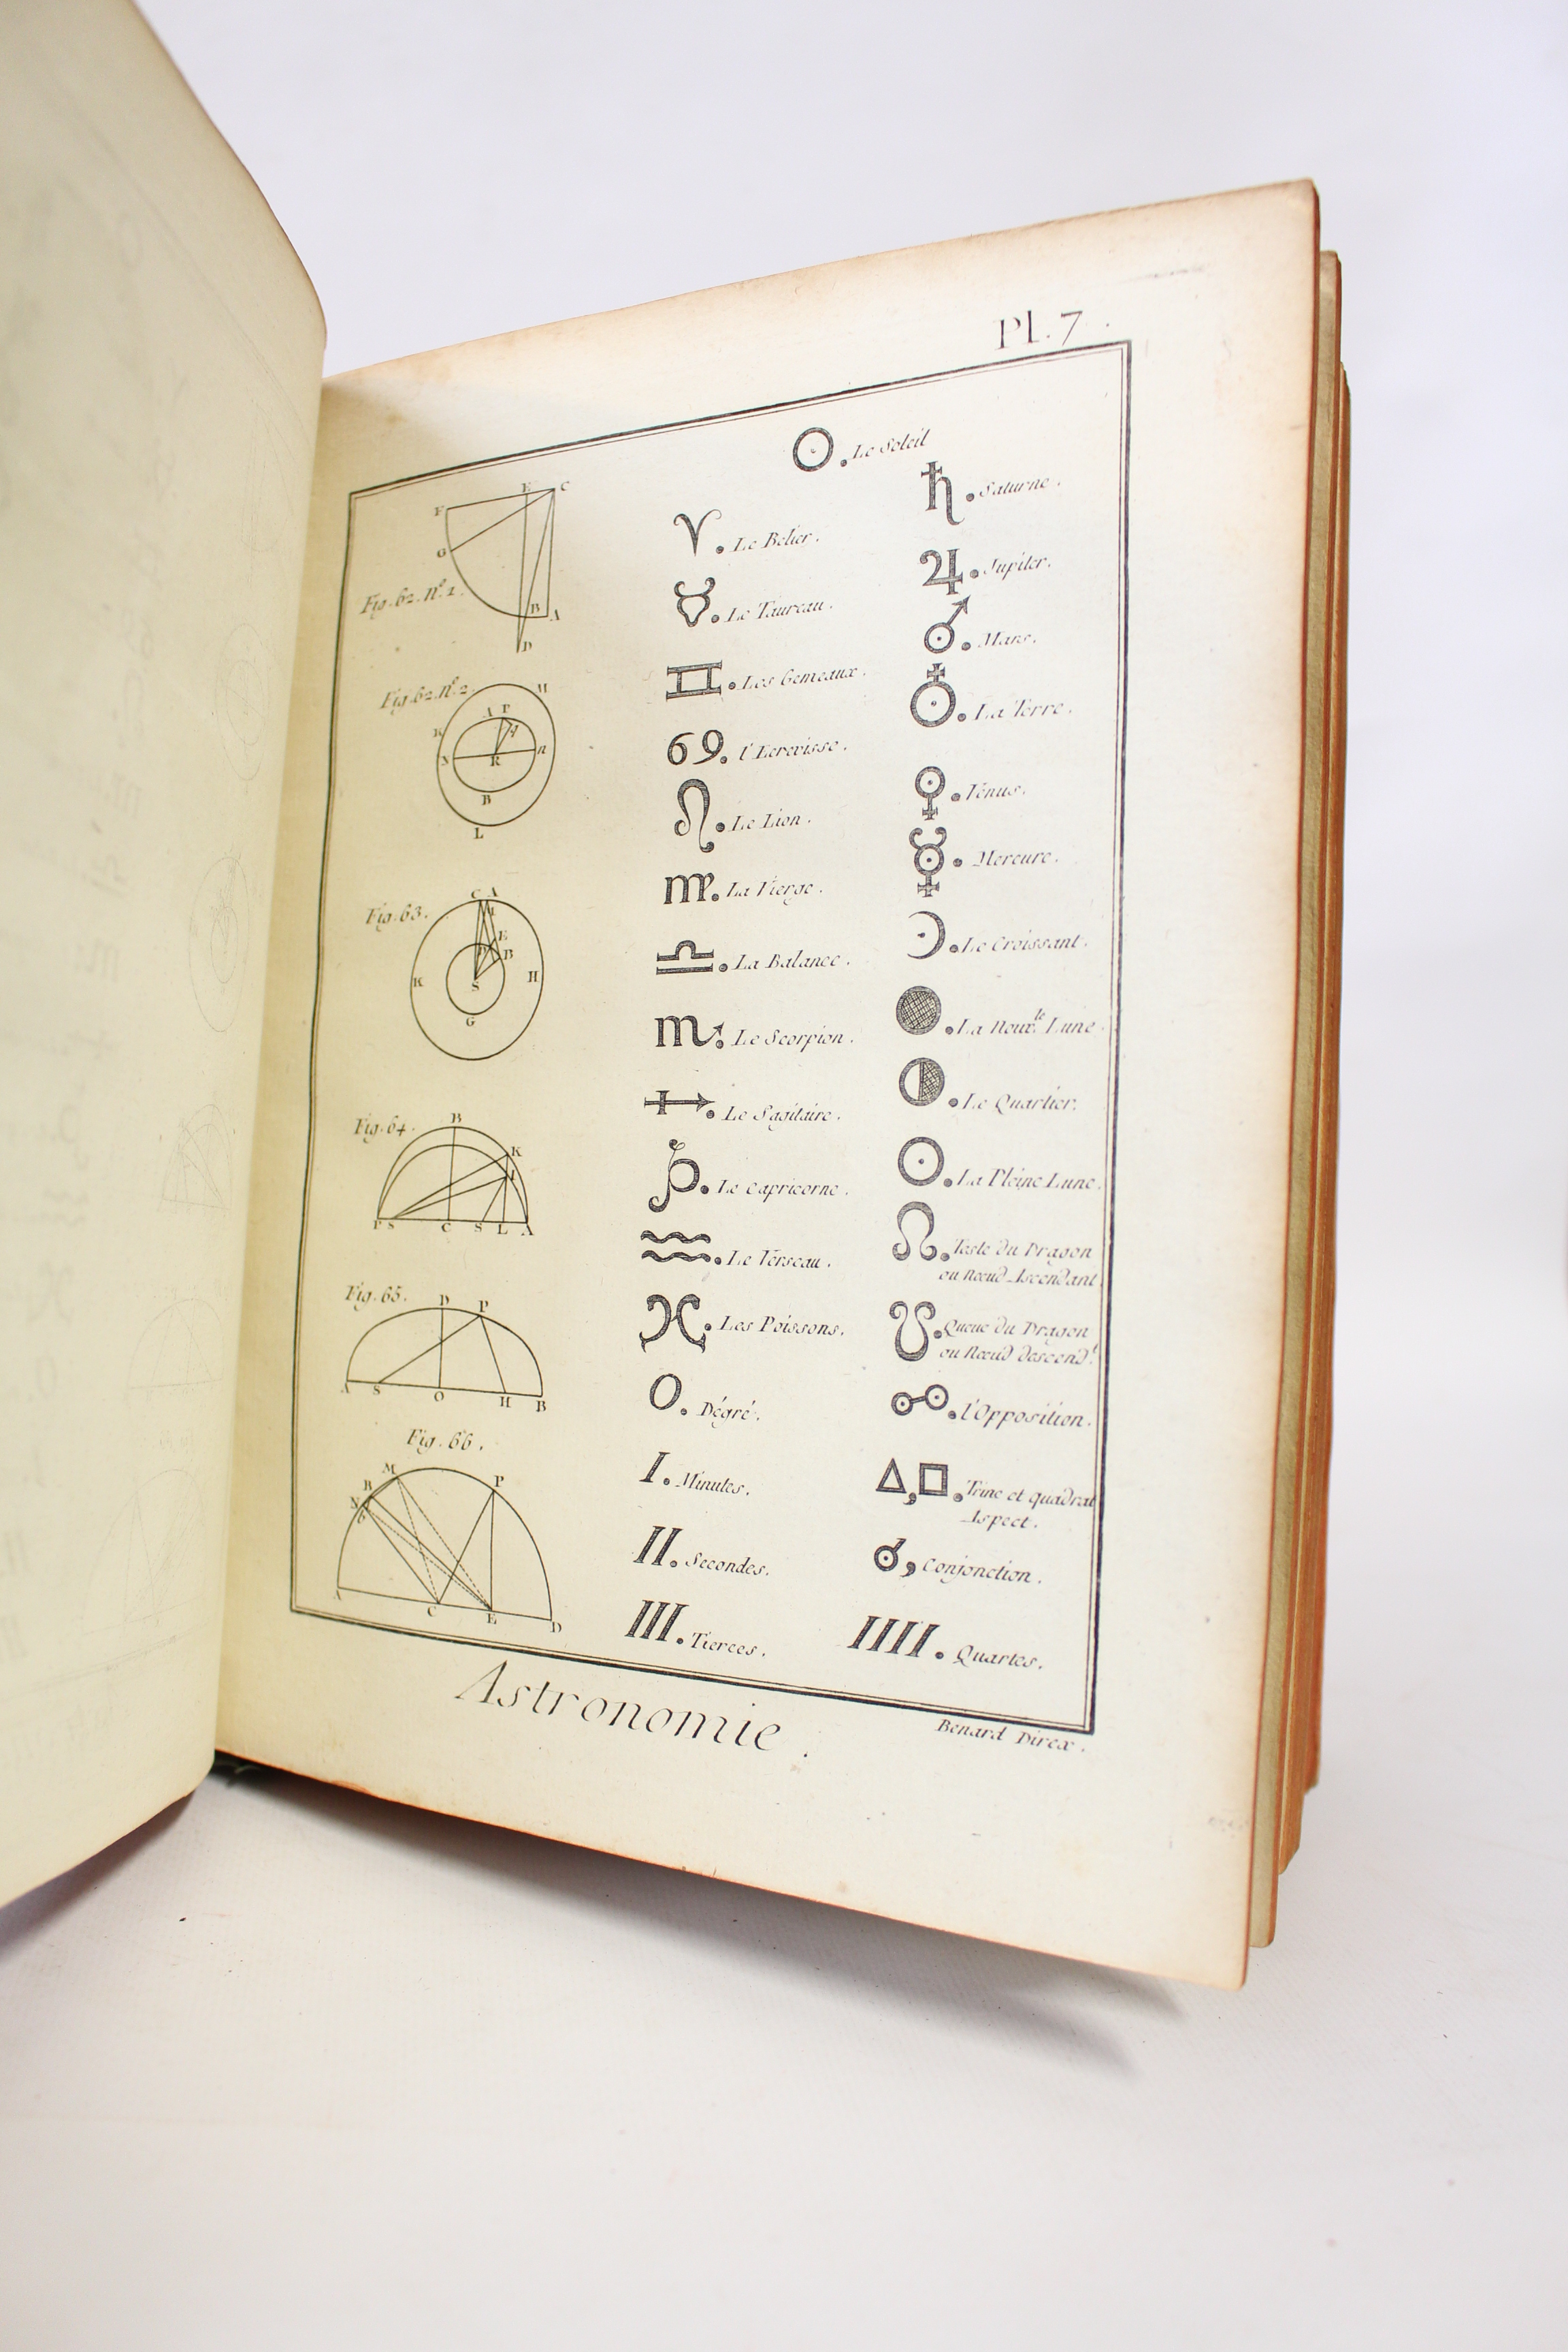 Pl. 7.
Le Soleil
Fig. 62. n.º 1.
F
E
C
G
B
A
D
Fig. 62. n.º 2.
M
A
P
K
N
R
n
B
L
Fig. 63.
C A
E
D
B
K
S
H
G
Fig. 64.
B
K
P S C S L A
Fig. 65.
D P
A S O H B
Fig. 66.
M
B
N
P
A
C
E
D
Le Belier.
Le Taureau.
Les Gemeaux.
69. l'Ecrevisse.
Le Lion.
La Vierge.
La Balance.
Le Scorpion.
Le Sagitaire.
Le Capricorne.
Le Verseau.
Les Poissons.
O. Dégré.
I. Minutes.
II. Secondes.
III. Tierces.
Saturne.
Jupiter.
Mars.
La Terre.
Vénus.
Mercure.
Le Croissant.
La Nouv.le Lune
Le Quartier.
La Pleine Lune.
Teste du Dragon
ou Nœud Ascendant
Queue du Dragon
ou Nœud descend.t
l'Opposition.
Trine et quadrat
Aspect.
Conjonction.
IIII. Quartes.
Astronomie.
Benard Direx.